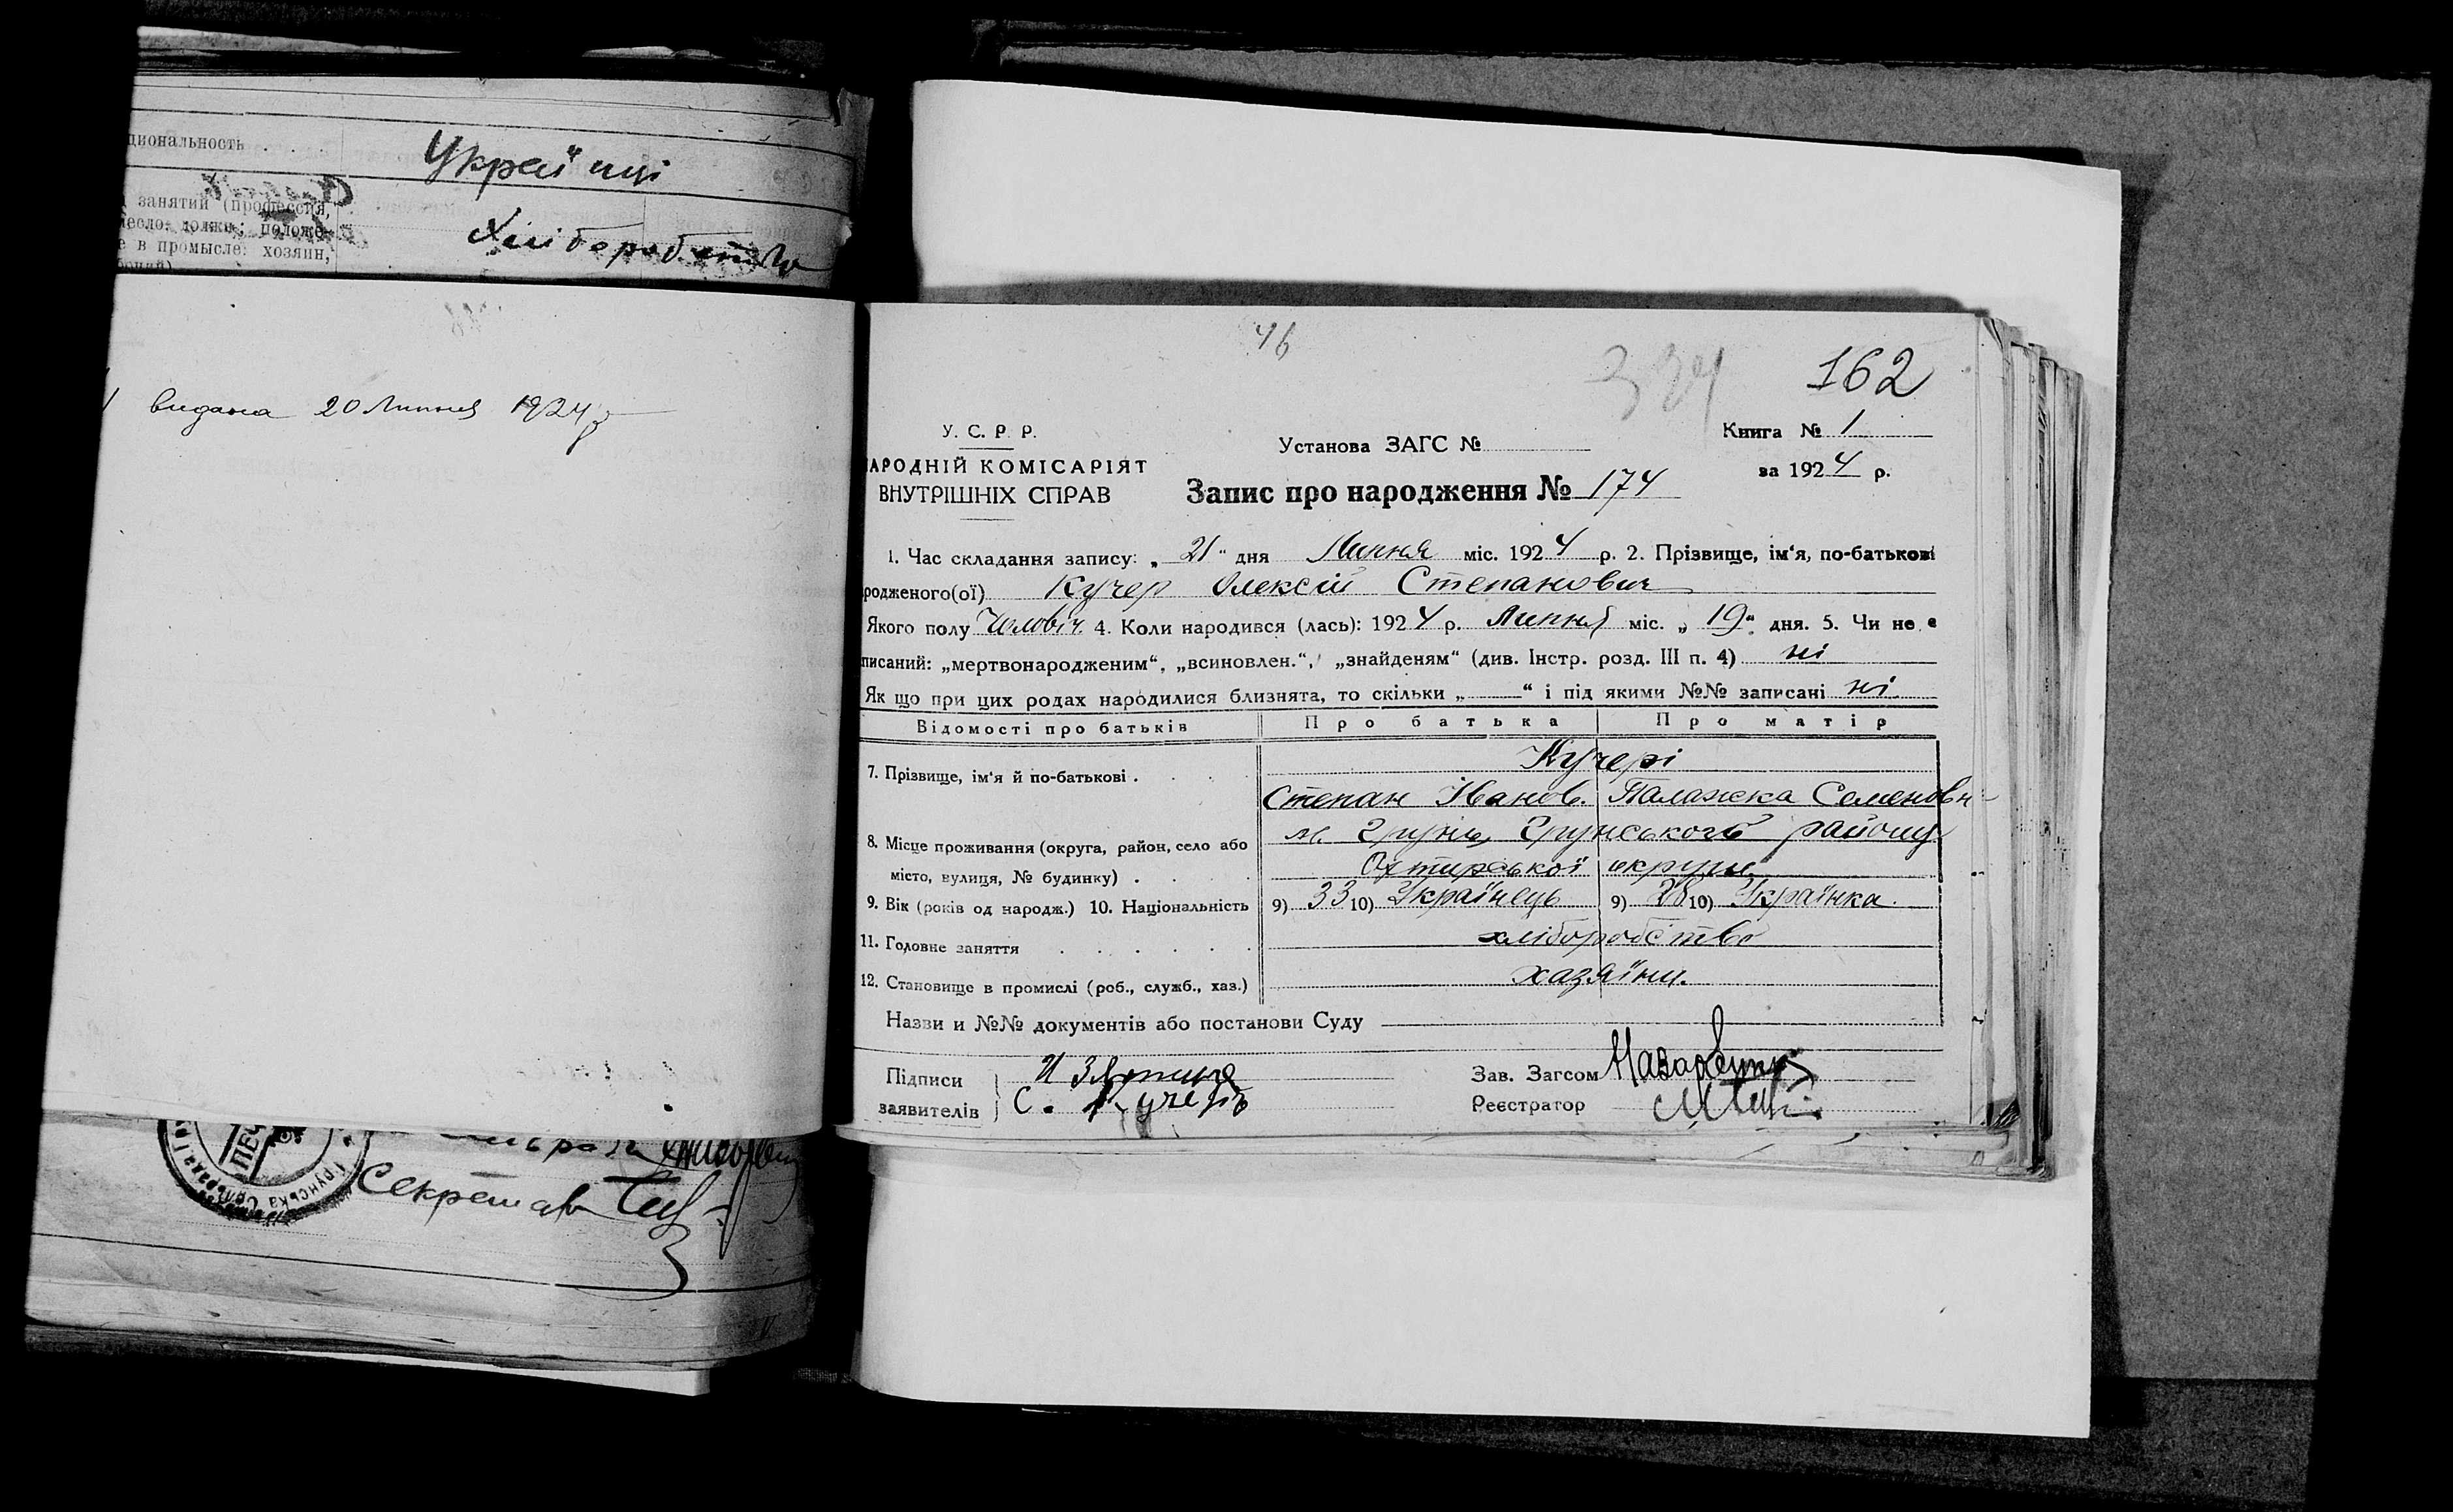 циональность . . .
Україці
д занятий (профессия,
месло: должн.; положе-
е в промысле: хозяин,
Хліборобство
видана 20 Липня 1924 р
46
334
162
У. С. Р. Р.
НАРОДНІЙ КОМІСАРІЯТ
ВНУТРІШНІХ СПРАВ
Установа ЗАГС №
Книга № 1
за 1924 р.
Запис про народження № 174
1. Час складання запису: „ 21 “ дня Липня міс. 1924 р. 2. Прізвище, ім‘я, по-батькові
родженого(ої) Кучер Олексій Степанович
Якого полу Чоловіч. 4. Коли народився (лась): 1924 р. Липня міс. „ 19 “ дня. 5. Чи не є
писаний: „мертвонародженим“, „всиновлен.“, „знайденям“ (див. Інстр. розд. III п. 4) ні
Як що при цих родах народилися близнята, то скільки „ “ і під якими №№ записані ні
Відомості про батьків Про батька Про матір
7. Прізвище, ім‘я й по-батькові . . . .
Кучері
Степан Іванов. Палажка Семеновн
8. Місце проживання (округа, район, село або
місто, вулиця, № будинку) . . . .
м. Грунь, Грунського району
Охтирської округи
9. Вік (років од народж.) 10. Національність 9) 33 10) Українець 9) 28 10) Українка.
11. Головне заняття . . . . . . хліборобство
12. Становище в промислі (роб., служб., хаз.) хазяїни.
Назви и №№ документів або постанови Суду
Підписи
заявителів
С. Кучерів
Зав. Загсом
Реєстратор
Грунська
Секретар